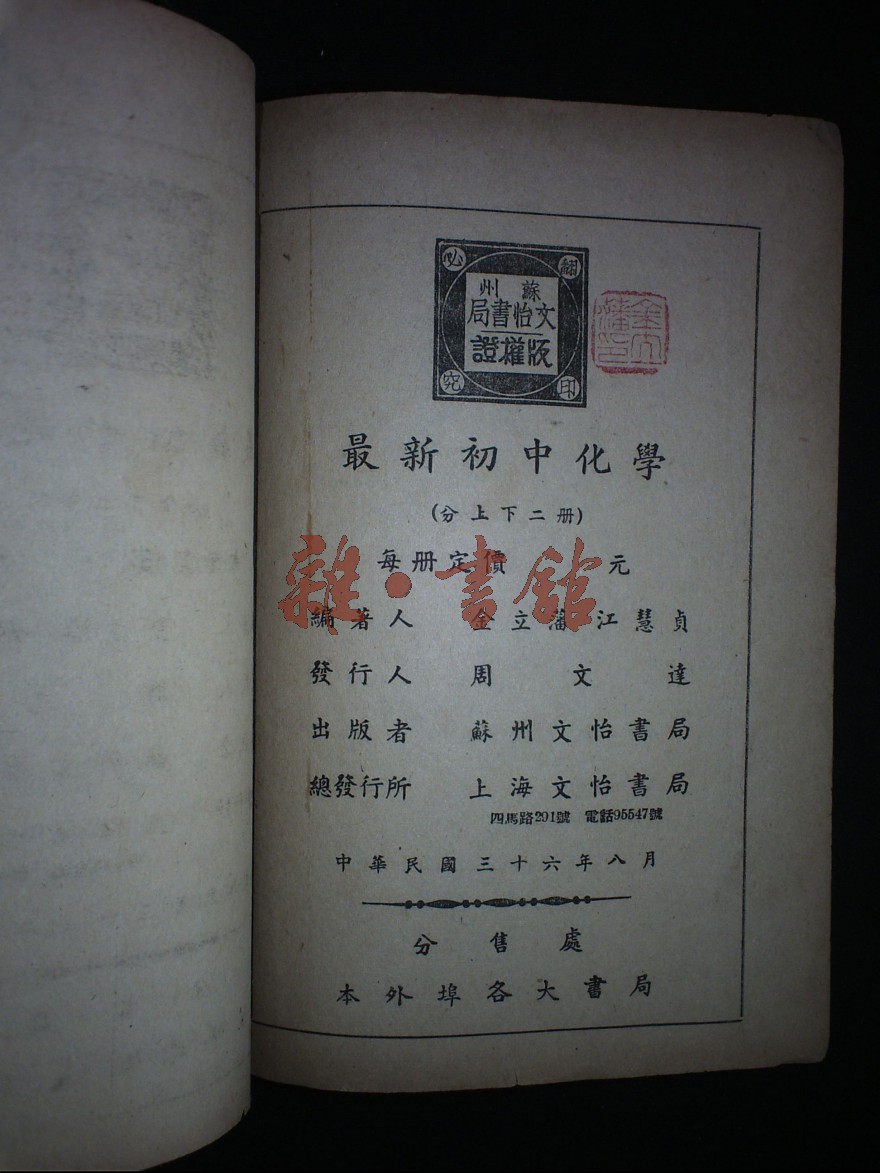 翻印必究
蘇州
文怡書局
版權證
金立藩印
最新初中化學
(分上下二册)
每册定價 元
雜·書館
編著人 金立藩 江慧貞
發行人 周文達
出版者 蘇州文怡書局
總發行所 上海文怡書局
四馬路291號 電話95547號
中華民國三十六年八月
分售處
本外埠各大書局